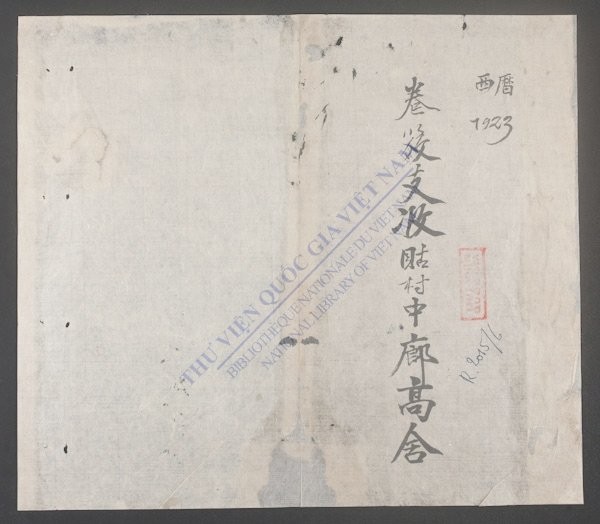 西曆
1923
卷支收𧵑村中廊高舍
R.2015/6
THƯ VIỆN QUỐC GIA VIỆT NAM
BIBLIOTHÈQUE NATIONALE DU VIET NAM
NATIONAL LIBRARY OF VIET NAM